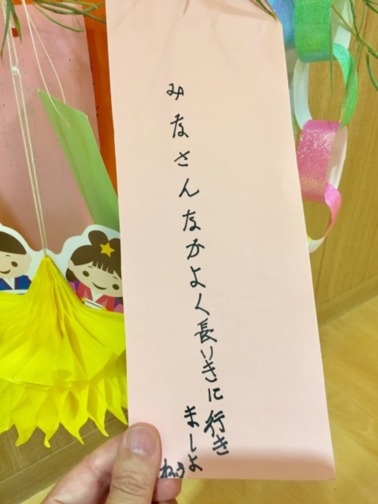 みなさんなかよく長いきに行き
ましよ
うね